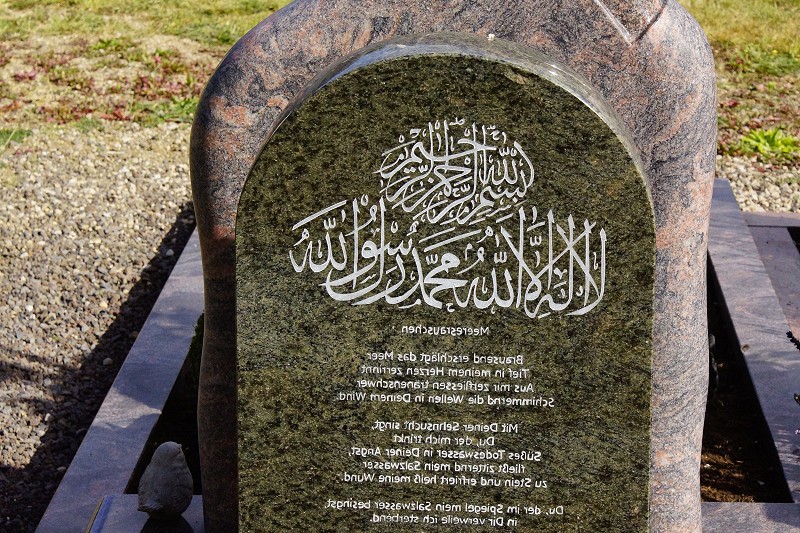 بسم الله الرحمن الرحيم
لا اله الا الله محمد رسول الله
Meeresrauschen
Brausend erschlägt das Meer
Tief in meinem Herzen zerrinnt
Aus mir zerfliessen tranenschwer
Schimmernd die Wellen in Deinem Wind.
Mit Deiner Sehnsucht singt,
Du, der mich trinkt
Süßes Todeswasser in Deiner Angst,
fließt zitternd mein Salzwasser
zu Stein und erfriert heiß meine Wund.
Du, der im Spiegel mein Salzwasser besingst,
in Dir verweile ich sterbend.